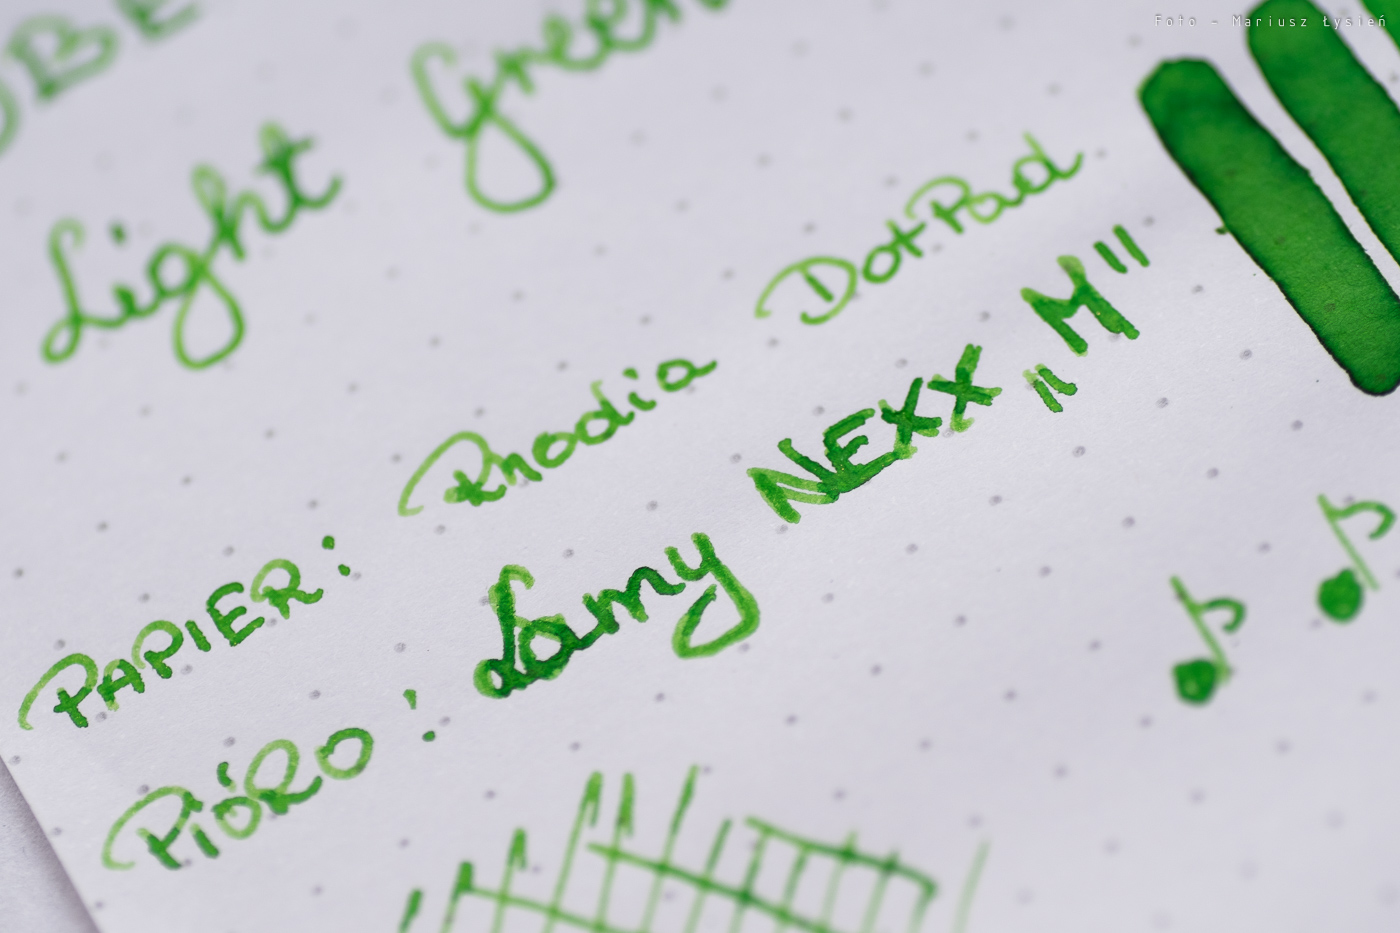 Foto - Mariusz Łysień
Light Green
PAPIER: Rhodia DotPad
PIÓRO: Lamy NEXX "M"